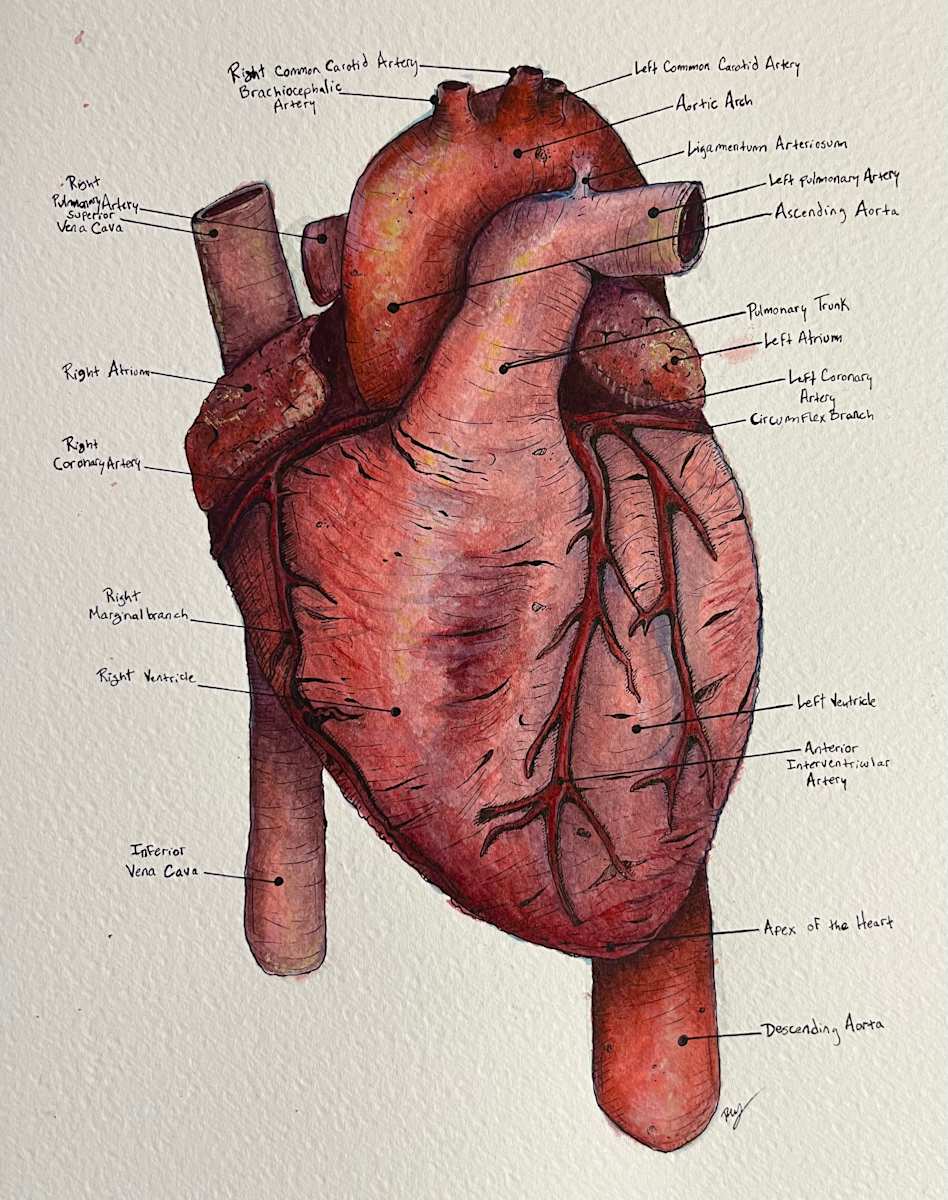 Right Common Carotid Artery
Brachiocephalic
Artery
Left Common Carotid Artery
Aortic Arch
Ligamentum Arteriosum
Left Pulmonary Artery
Ascending Aorta
Right
Pulmonary Artery
Superior
Vena Cava
Pulmonary Trunk
Left Atrium
Right Atrium
Left Coronary
Artery
Circumflex Branch
Right
Coronary Artery
Right
Marginal branch
Right Ventricle
Left Ventricle
Anterior
Interventricular
Artery
Inferior
Vena Cava
Apex of the Heart
Descending Aorta